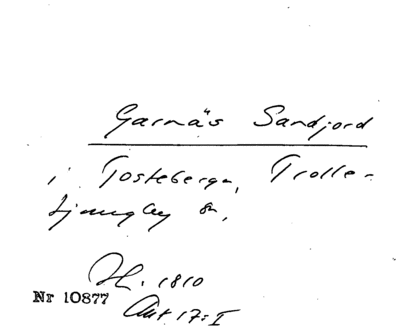 Garnäs Sandjord
i Tosteberga, Trolle-
ljungby sn,
H. 1810
Nr 10877
Akt 17:I